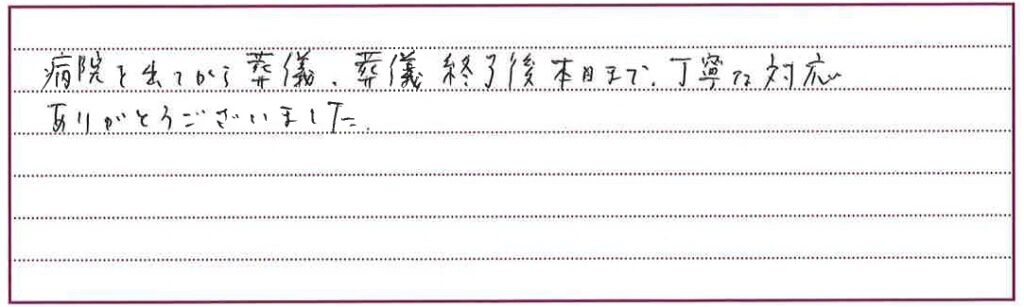 病院を出てから葬儀、葬儀終了後本日まで、丁寧な対応
ありがとうございました。